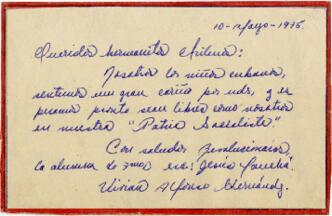 10-Mayo-1975.
Queridos hermanitos chilenos:
Nosotros los niños cubanos,
sentimos un gran cariño por uds, y es
peramos pronto sean libres como nosotros
en nuestra "Patria Socialista"
Con saludos Revolucionarios
la alumna de 2mo esc: Jesús
Vivian Alfonso Hernández.